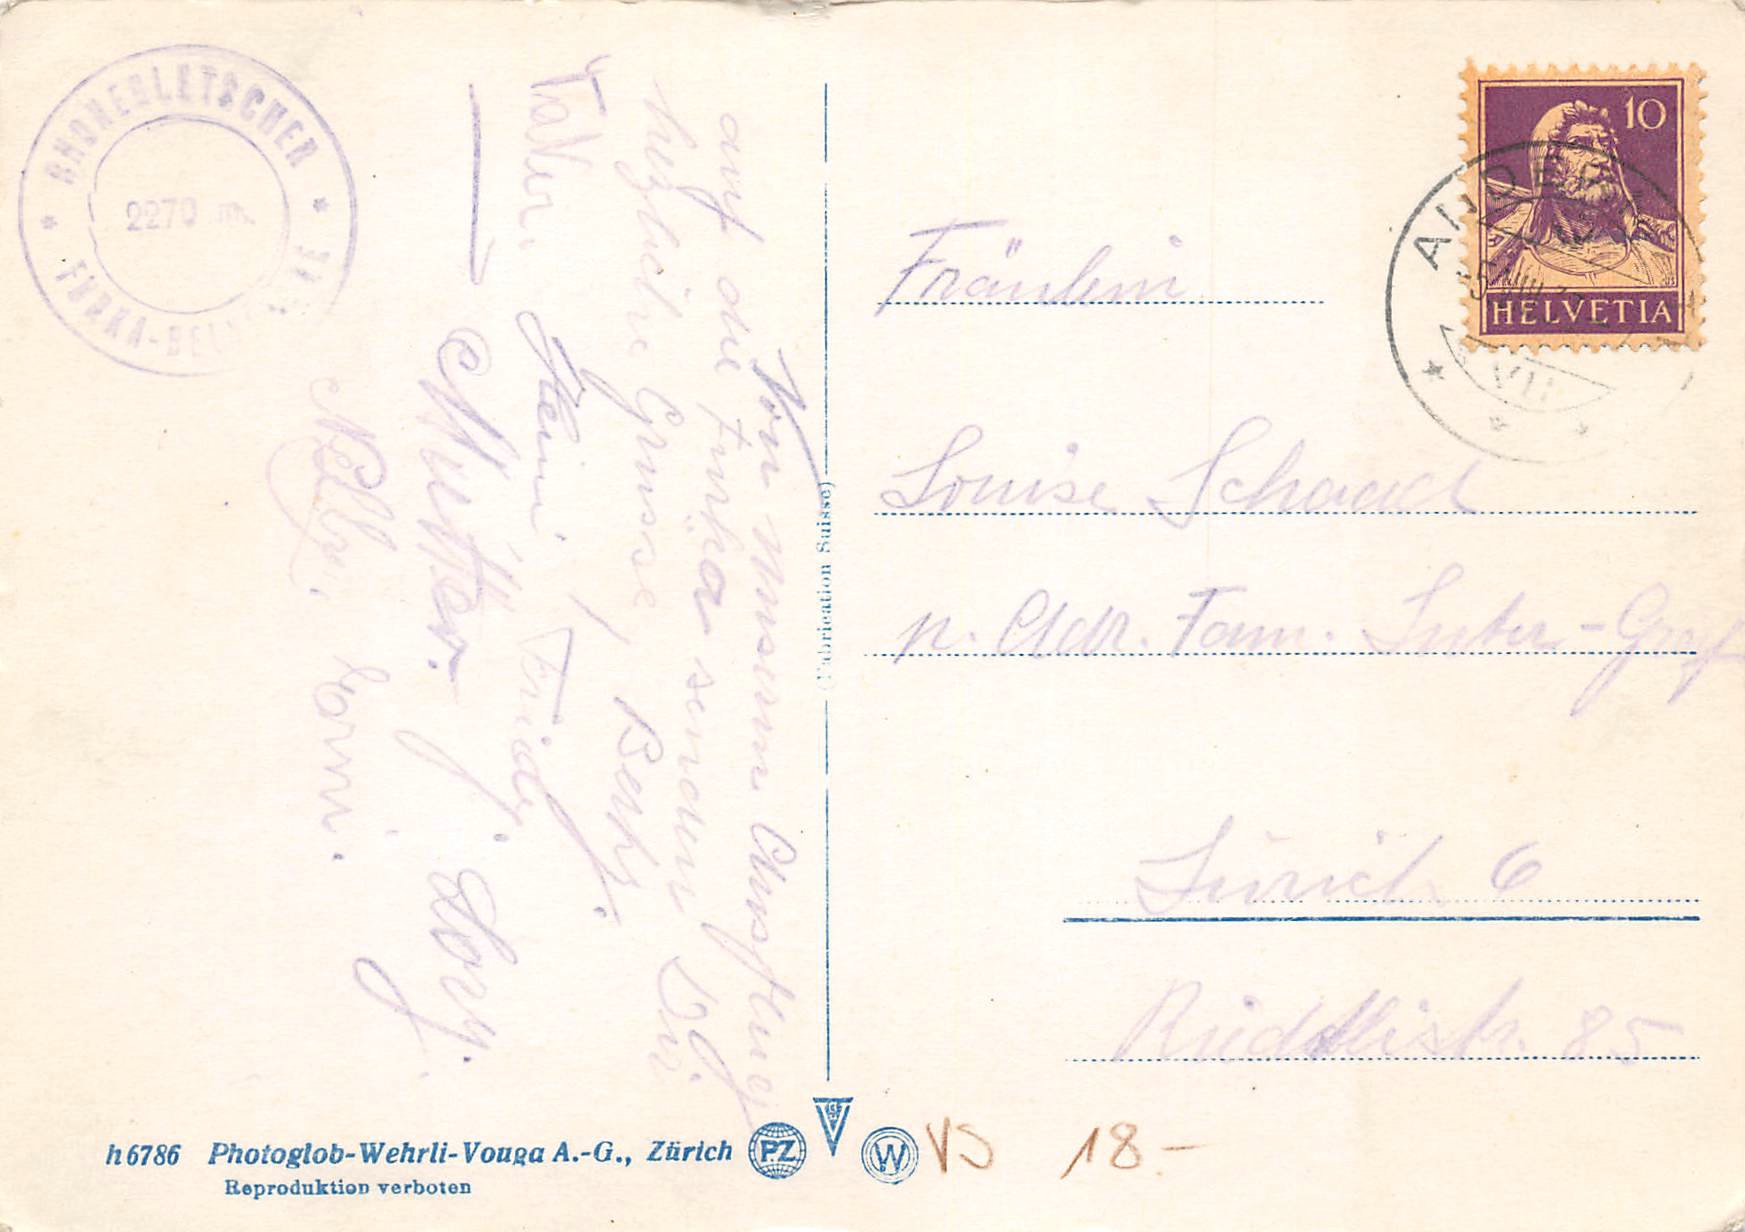 RHONEGLETSCHER
2270 m.
FURKA-BELV
Von unserm Ausflug
auf die Furka senden Dir
herzliche Grüsse, Berty.
Vater. Heini, Fridy.
Mutter. Lory.
Nelly, Erwin.
(Fabrication Suisse)
10
HELVETIA
VIII
VII
Fräulein
Louise Schaad
p. Adr. Fam. Suter-Graf
Zürich 6
Riedtlistr. 85
h6786 Photoglob-Wehrli-Vouga A.-G., Zürich
PZ
W
Reproduktion verboten
VS 18.-